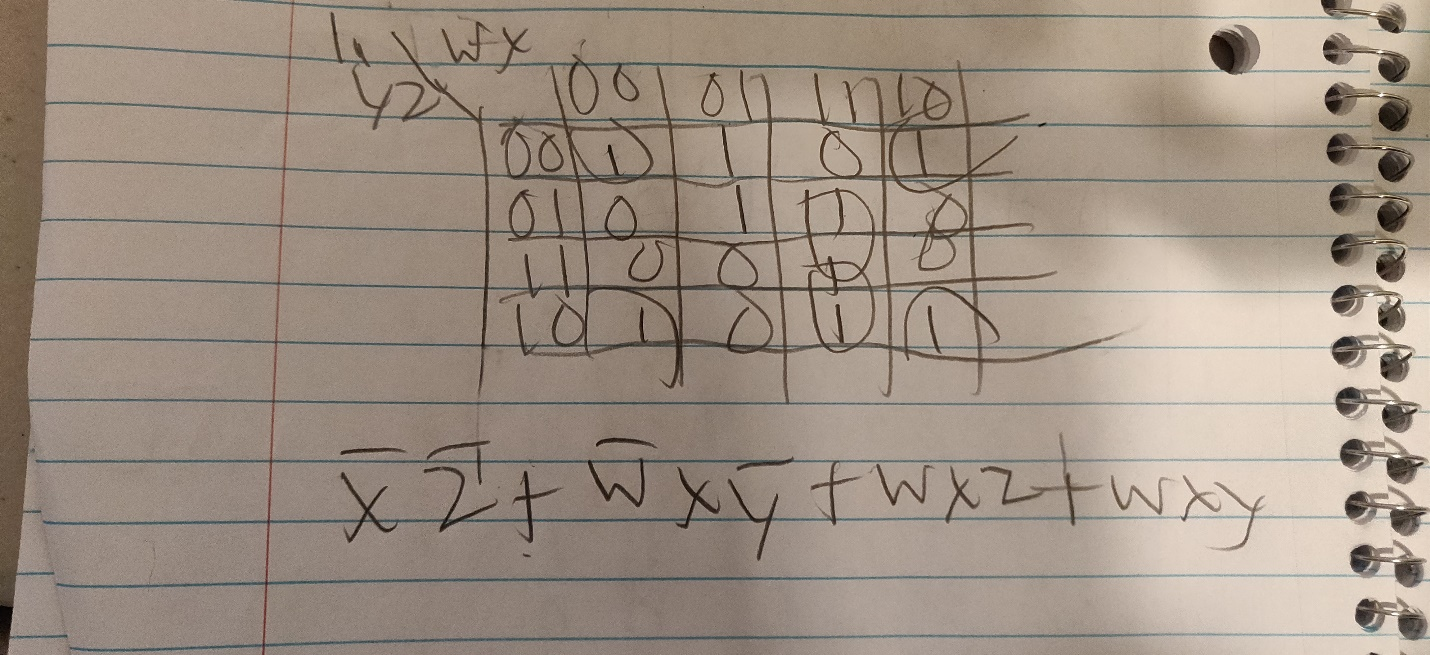 1. wx
yz 00 01 11 10
00 1 1 0 1
01 0 1 1 0
11 0 0 1 0
10 1 0 1 1
x̄ z̄ + w̄ x ȳ + w x z + w x y